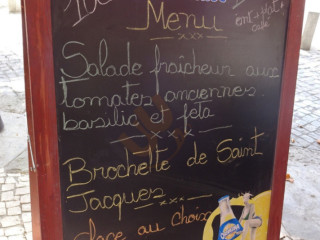 Menu
Salade fraicheur aux
tomates anciennes
basilic et feta
Brochette de Saint
Jacques
Glace au choix